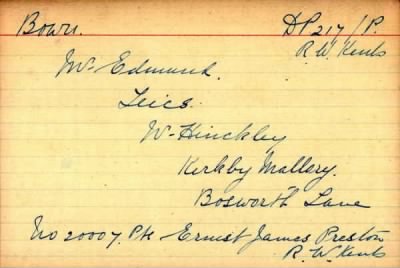 Bown. DP217/P.
R.W. Kents
Mr Edmund.
Leics.
W-Hinckley
Kerkby Mallery.
Bosworth Lane
No 20007. Pte Ernest James Preston
R.W. Kents